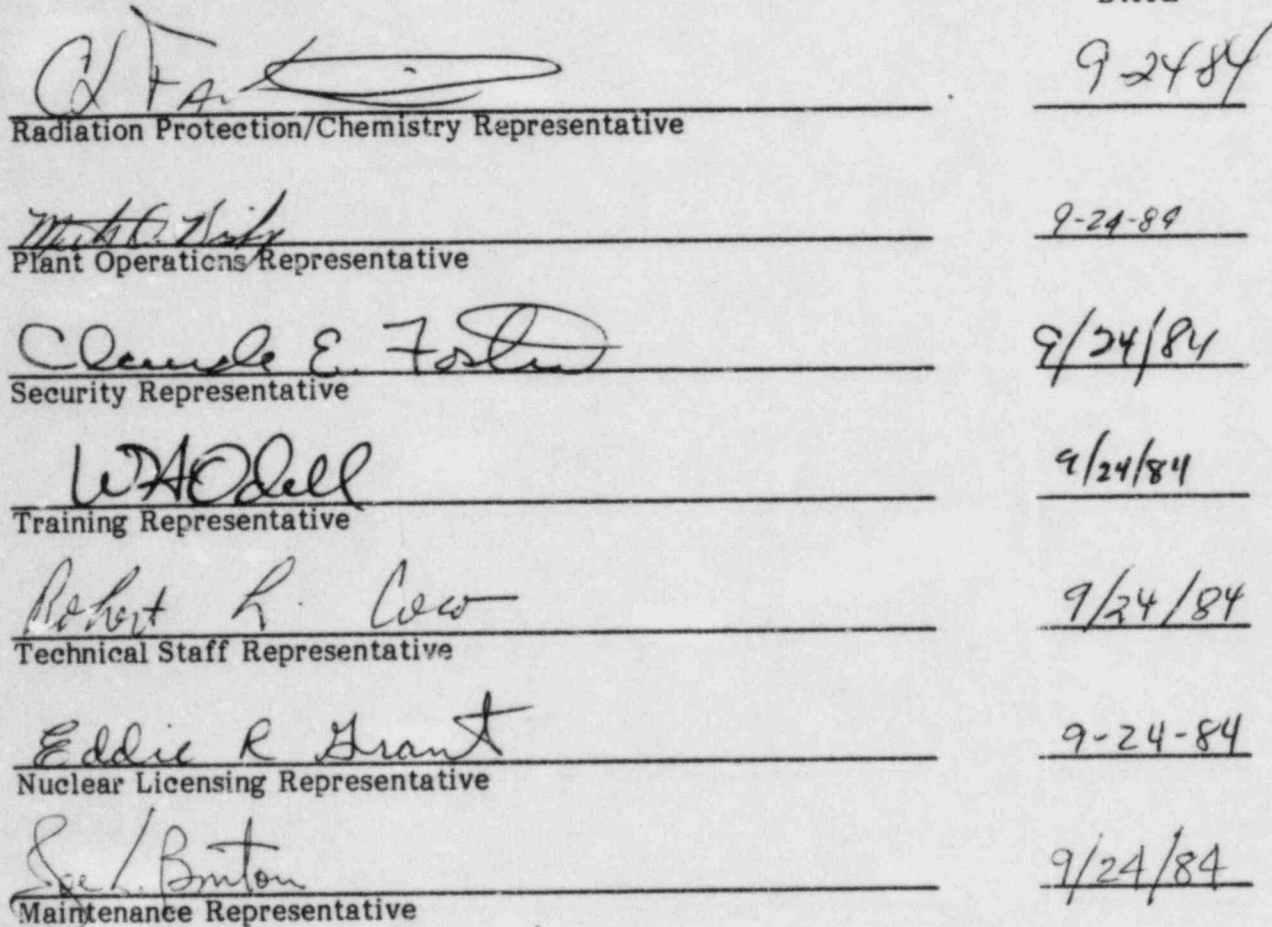 9-24-84
Radiation Protection/Chemistry Representative
9-24-84
Plant Operations Representative
Claude E. Foster 9/24/84
Security Representative
WAOdell 9/24/84
Training Representative
Robert L. 9/24/84
Technical Staff Representative
Eddie R Grant 9-24-84
Nuclear Licensing Representative
L. Burton 9/24/84
Maintenance Representative